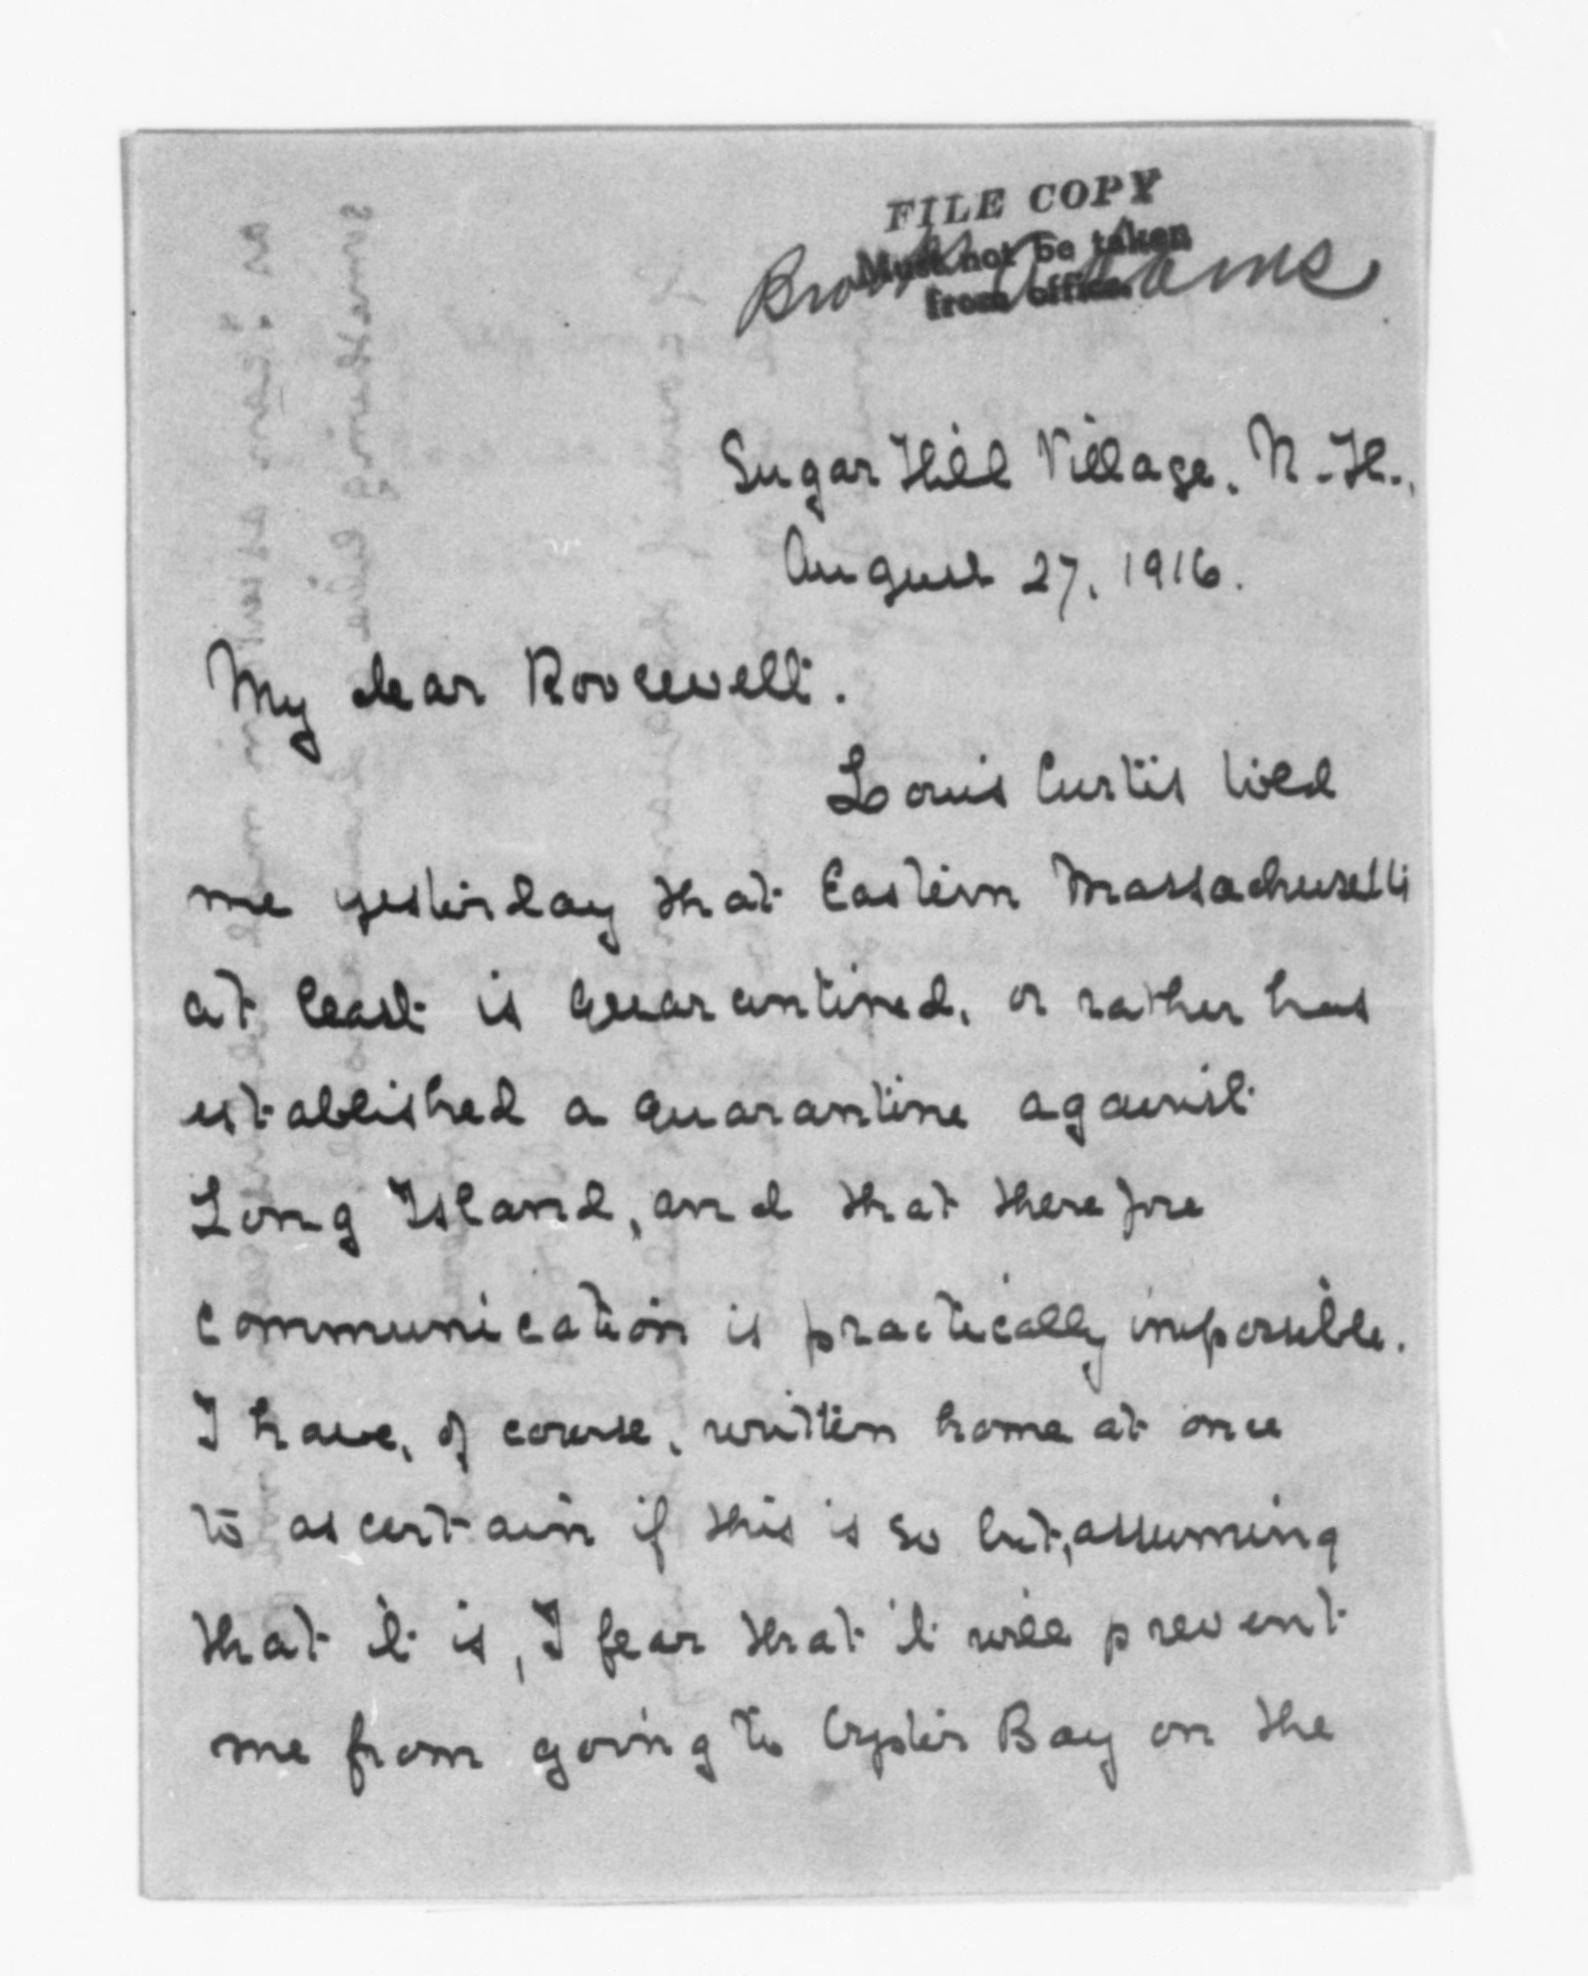 FILE COPY
Must not be taken
from office.
Brooks Adams
Sugar Hill Village, N.H.,
August 27, 1916.
My dear Roosevelt.
Louis Curtis told
me yesterday that Eastern Massachusetts
at least is quarantined, or rather has
established a quarantine against
Long Island, and that therefore
communication is practically impossible.
I have, of course, written home at once
to ascertain if this is so but, assuming
that it is, I fear that it will prevent
me from going to Oyster Bay on the